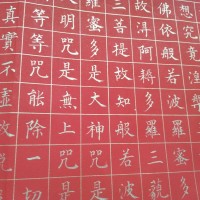 想究竟
佛依般若波羅蜜多
故得阿耨多羅三藐
三菩提故知般若波
蜜多是大神咒是
大明咒是無上咒是
等等咒能除一切
真實不虛故